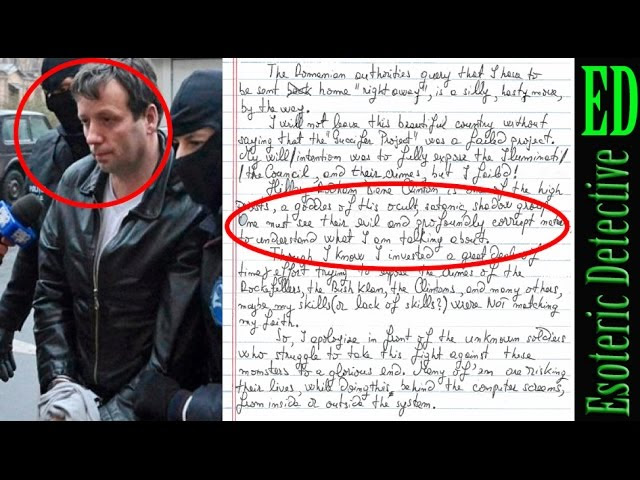 The Romanian authorities query that I have to
be sent back home "right away", is a silly, hasty move,
by the way.
I will not leave this beautiful country without
saying that the "Guccifer Project" was a failed project.
My will/intention was to fully expose the Illuminati/
/the Council, and their crimes, but I failed!
Hillary Rodham Diane Clinton is one of the high
priests, a goddes of this occult, satanic, shadow group.
One must see their evil and profoundly corrupt
to understand what I am talking about.
Though I knew I invested a great deal of
time & effort trying to expose the crimes of the
Rockefellers, the Bush Klan, the Clintons, and many others,
maybe my skills (or lack of skills?) were NOT matching
my faith.
So, I apologise in front of the unknown soldiers
who struggle to take this fight against these
monsters to a glorious end. Many of 'em are risking
their lives, while doing this, behind the computer screens,
from inside or outside the system.
ED
Esoteric Detective